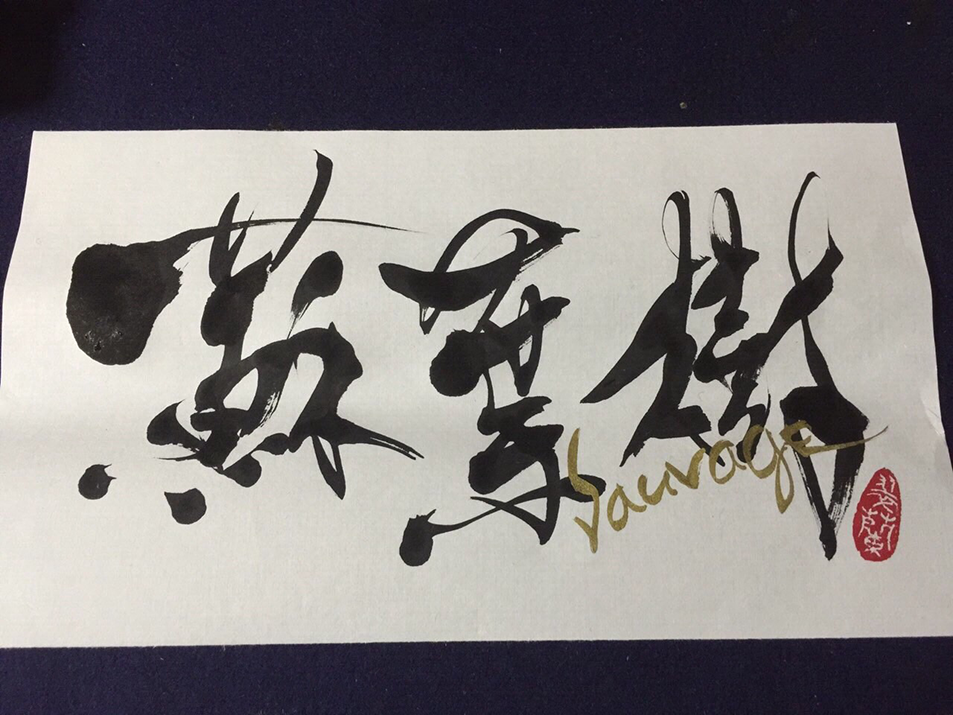 蘇葉樹
Sauvage